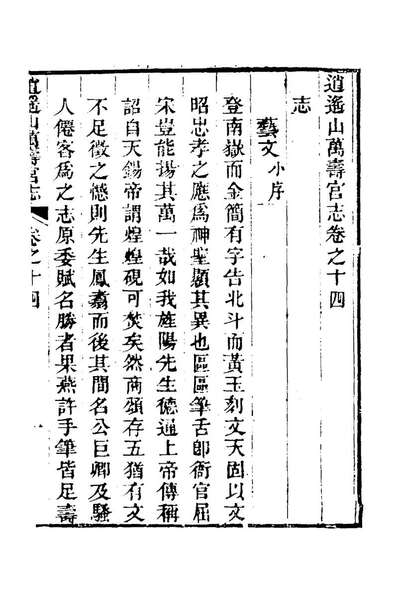 逍遙山萬壽宮志卷之十四
志
藝文 小序
登南嶽而金簡有字告北斗而黃玉刻文天固以文
昭忠孝之應為神聖顯其異也區區筆舌即衙官屈
宋豈能揚其萬一哉如我旌陽先生德通上帝傳稱
詔自天錫帝謂煌煌硯可焚矣然商頌存五猶有文
不足徵之憾則先生鳳翥而後其間名公巨卿及騷
人僊客為之志原委賦名勝者果燕許手筆皆足壽
逍遙山萬壽宮志 卷之十四